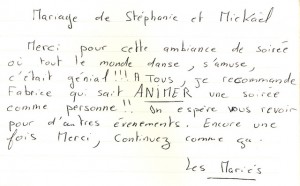 Mariage de Stéphanie et Mickaël
Merci pour cette ambiance de soirée
où tout le monde danse, s'amuse,
c'était génial!!! A Tous, je recommande
Fabrice qui sait ANIMER une soirée
comme personne!! On espère vous revoir
pour d'autres évenements. Encore une
fois Merci, Continuez comme ça.
Les Mariés